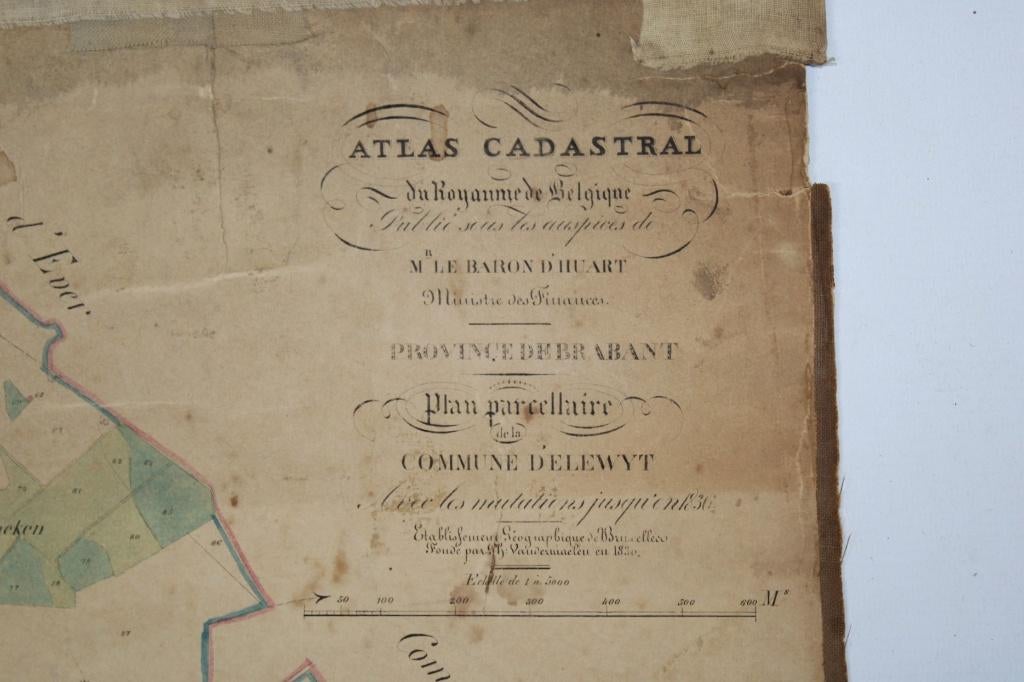 ATLAS CADASTRAL
du Royaume de Belgique
Publié sous les auspices de
MR LE BARON D'HUART
Ministre des Finances.
PROVINCE DE BRABANT
Plan parcellaire
de la
COMMUNE D'ELEWYT
Avec les mutations jusqu'en
Etablissement Géographique de Bruxelles
Fondé par Ph Vandermaelen en 1830.
Echelle de 1 à 5000
50 100 200 300 400 500 600 Ms
d'Ever
eken
Com